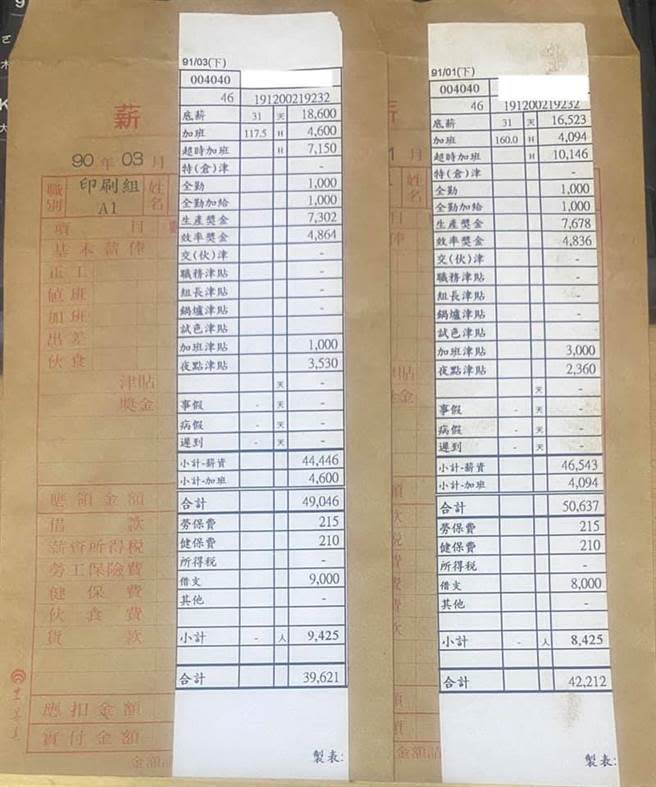 薪
90 年 03 月
職別 印刷組 A1 姓名
項 目
基本薪俸
正工
值班
加班
出差
伙食
津貼
獎金
應領金額
借 款
薪資所得稅
勞工保險費
健保費
伙食費
貨 款
應扣金額
實付金額
金額請
91/03(下)
004040
46 191200219232
底薪 31 天 18,600
加班 117.5 H 4,600
超時加班 H 7,150
特(倉)津 -
全勤 1,000
全勤加給 1,000
生產獎金 7,302
效率獎金 4,864
交(伙)津 -
職務津貼 -
組長津貼 -
鍋爐津貼 -
試色津貼 -
加班津貼 1,000
夜點津貼 3,530
天 -
事假 - 天 -
病假 - 天 -
遲到 - 天 -
小計-薪資 44,446
小計-加班 4,600
合計 49,046
勞保費 215
健保費 210
所得稅 -
借支 9,000
其他 -
小計 - 人 9,425
合計 39,621
製表:
91/01(下)
004040
46 191200219232
底薪 31 天 16,523
加班 160.0 H 4,094
超時加班 H 10,146
特(倉)津 -
全勤 1,000
全勤加給 1,000
生產獎金 7,678
效率獎金 4,836
交(伙)津 -
職務津貼 -
組長津貼 -
鍋爐津貼 -
試色津貼 -
加班津貼 3,000
夜點津貼 2,360
天 -
事假 - 天 -
病假 - 天 -
遲到 - 天 -
小計-薪資 46,543
小計-加班 4,094
合計 50,637
勞保費 215
健保費 210
所得稅 -
借支 8,000
其他 -
小計 - 人 8,425
合計 42,212
製表: